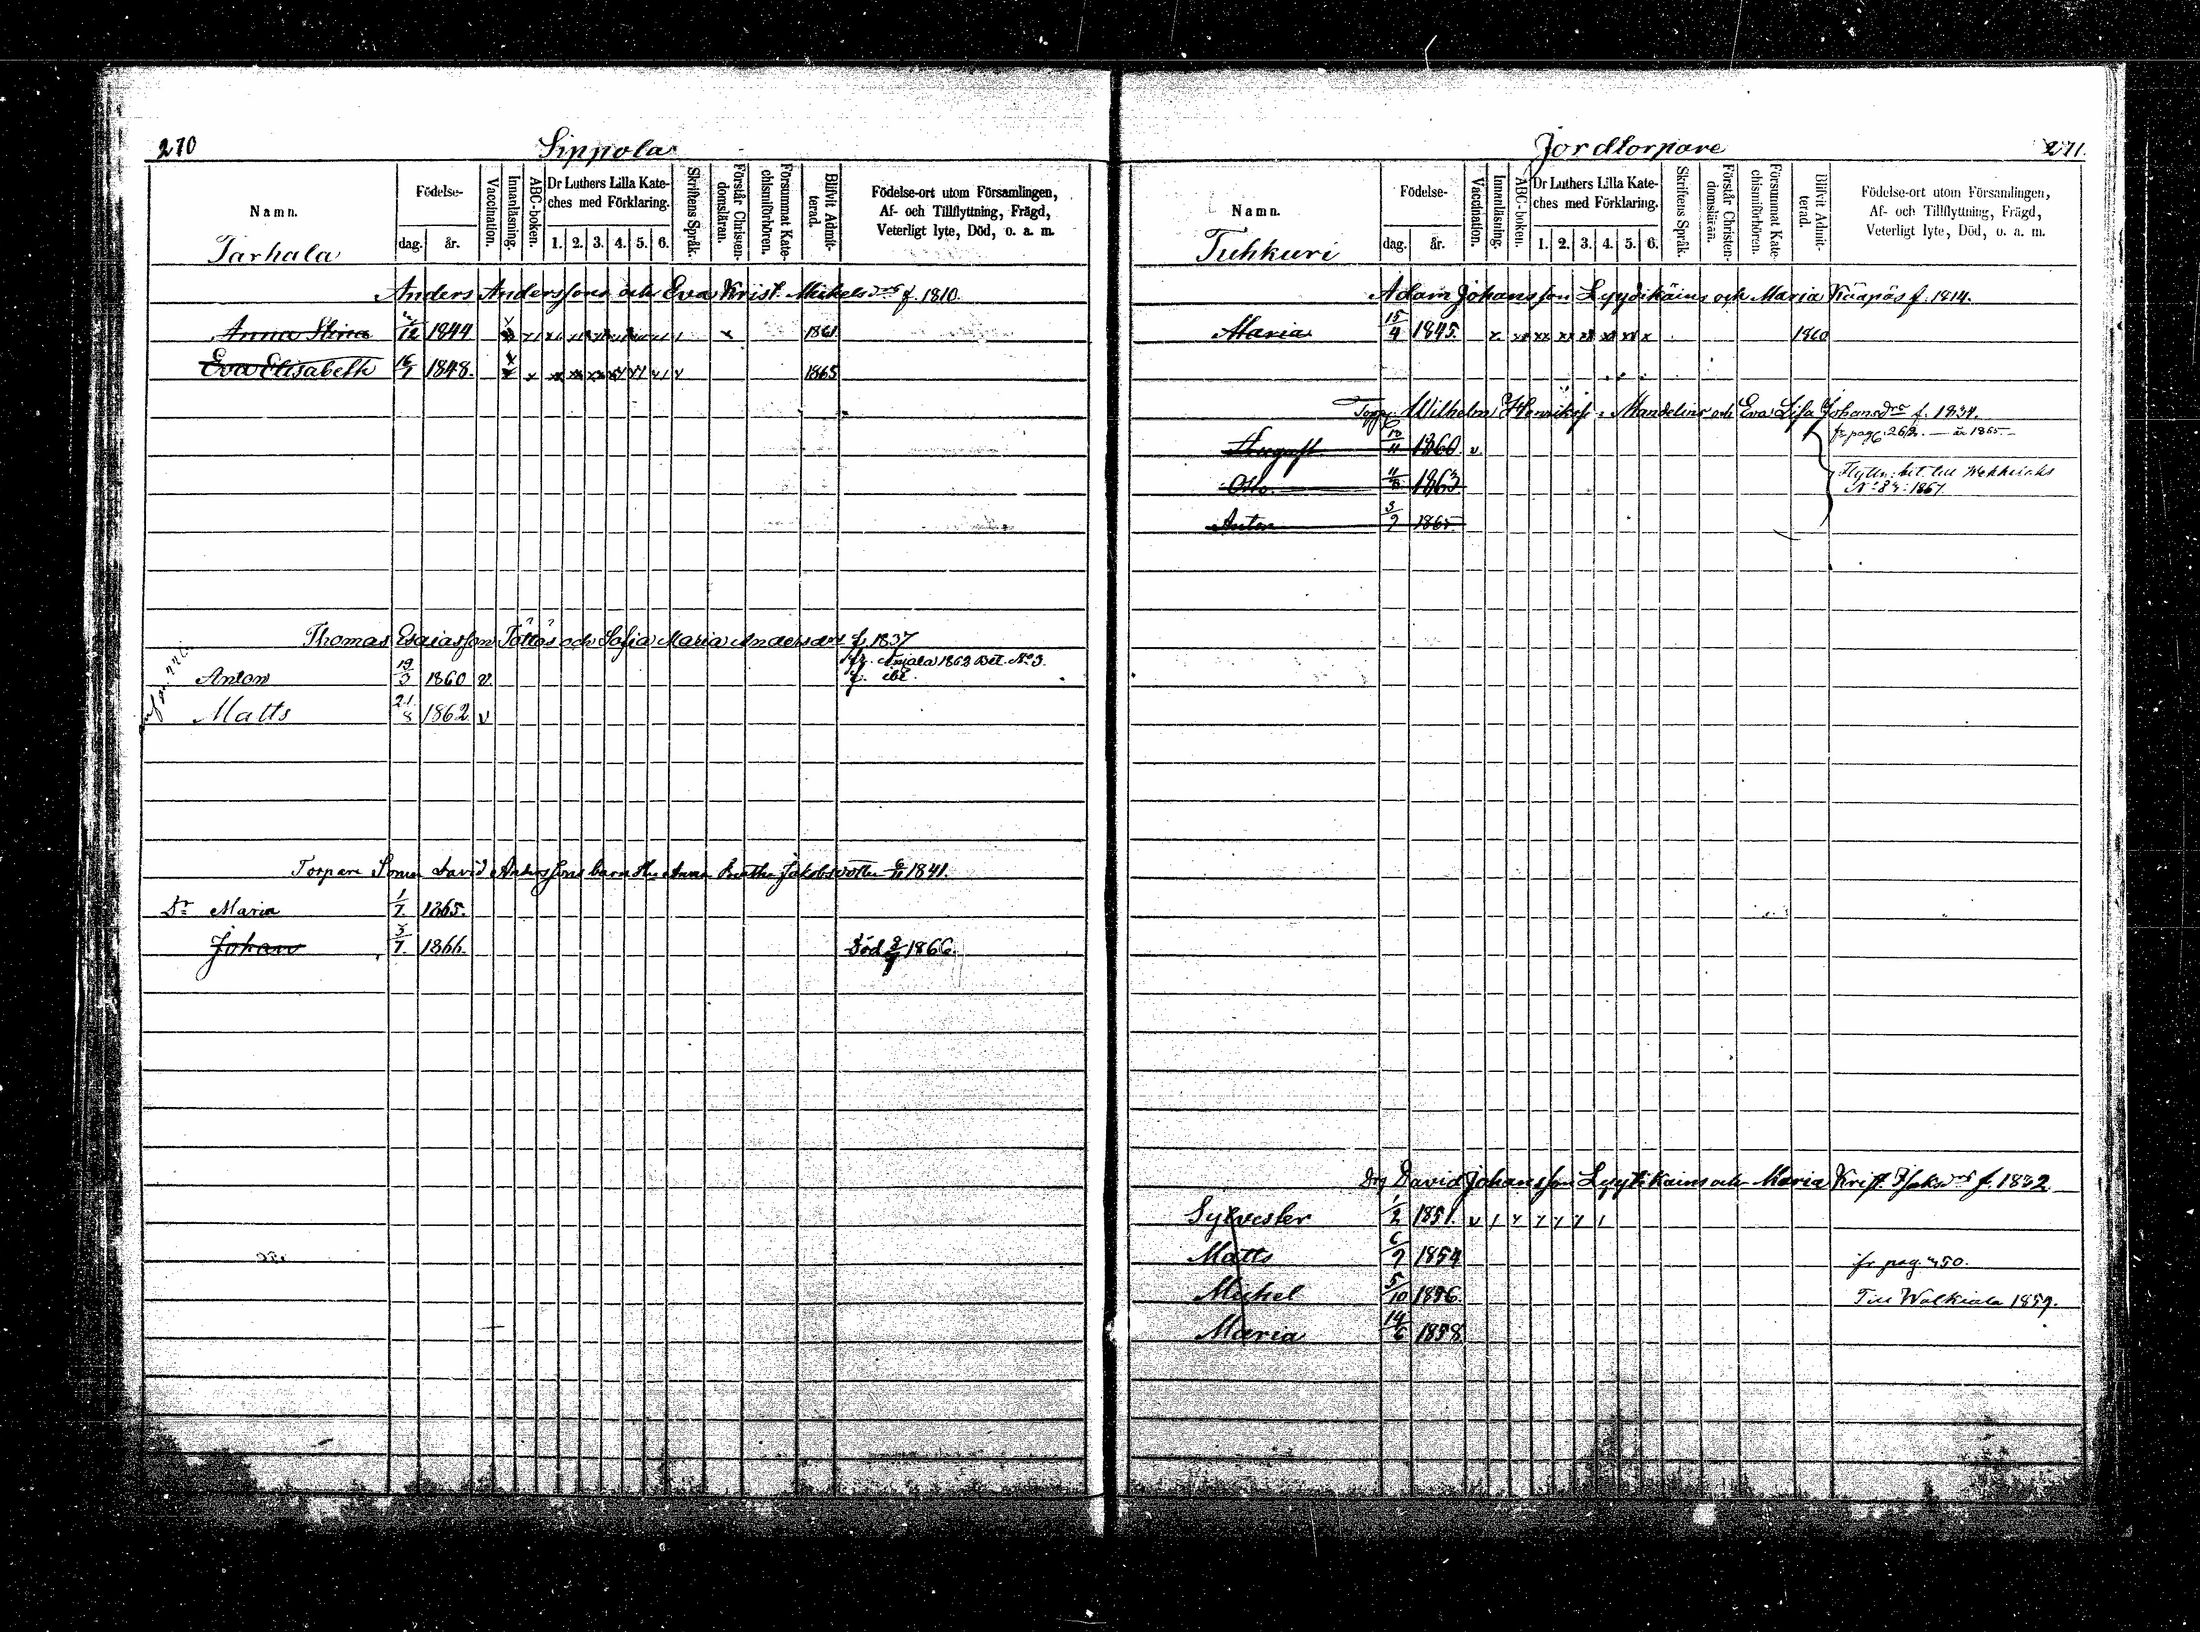 270
Sippola
Namn.
Födelse-
dag.
år.
Vaccination.
Innanläsning.
ABC-boken.
Dr Luthers Lilla Kate-
ches med Förklaring.
1. 2. 3. 4. 5. 6.
Skriftens Språk.
Förstår Christen-
domsläran.
Försummat Kate-
chismiförhören.
Blifvit Admit-
terad.
Födelse-ort utom Församlingen,
Af- och Tillflyttning, Frägd,
Veterligt lyte, Död, o. a. m.
Tarhala
Anders Andersson och Eva Krist. Mickelsdr f. 1810.
Anna Stina 12 1844 1861
Eva Elisabeth 16/7 1848. 1865
Thomas Esaiasson Töttös och Sofia Maria Andersdr f. 1837
fr. Anjala 1862 Bet. No 3.
Anton 19/3 1860 v.
Matts 21/8 1862 v
Torpare Sonen David Anderssons barn Hu Anna Jakobsdotter 6/11 1841.
Dr Maria 1/7 1865.
Johan 3/7. 1866. Död 1866.
Jordtorpare
271.
Namn.
Födelse-
dag.
år.
Vaccination.
Innanläsning.
ABC-boken.
Dr Luthers Lilla Kate-
ches med Förklaring.
1. 2. 3. 4. 5. 6.
Skriftens Språk.
Förstår Christen-
domsläran.
Försummat Kate-
chismiförhören.
Blifvit Admit-
terad.
Födelse-ort utom Församlingen,
Af- och Tillflyttning, Frägd,
Veterligt lyte, Död, o. a. m.
Tuhkuri
Adam Johansson Lyydikäin och Maria Käapäs f. 1814.
Maria 15/4 1845. 1860
Wilhelm Henrikss. Mandelin och Eva Lisa Johansdr f. 1834.
fr pag. 262. — år 1865 —
August 1860 v
Otto 1863
Flyttn. bet. till Wekkelaks
No 84: 1867.
Anton 3/9 1865
Drg David Johansson Lyytikäin och Maria Krist. Isaksdr f. 1832
Sylvester 1/2 1851. v
Matts 6/9 1854
fr pag. 450.
Michel 5/10 1856.
Till Walkiala 1859.
Maria 14/6 1858